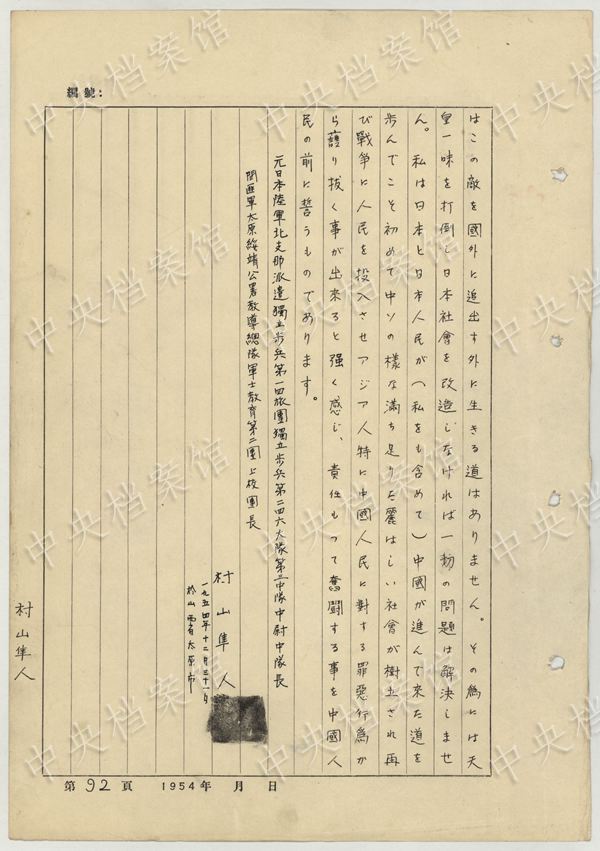 編號：
はこの敵を國外に追出す外に生きる道はありません。その為には天
皇一味を打倒し日本社會を改造しなければ一切の問題は解決しませ
ん。私は日本と日本人民が（私をも含めて）中國が進んで来た道を
歩んでこそ初めて中ソの様な満ち足りた麗はしい社會が樹立され再
び戰争に人民を投入させアジア人特に中國人民に対する罪惡行為か
ら護り拔く事が出来ると强く感じ、責任もって奮闘する事を中國人
民の前に誓うものであります。
元日本陸軍北支那派遣獨立步兵第一四旅團獨立步兵第二四六大隊第三中隊中尉中隊長
閻匪軍太原綏靖公署教導總隊軍士教育第二團上校團長
村山隼人
一九五四年十二月三十一日
於山西省太原市
村山隼人
第92頁 1954年 月 日
中央档案馆